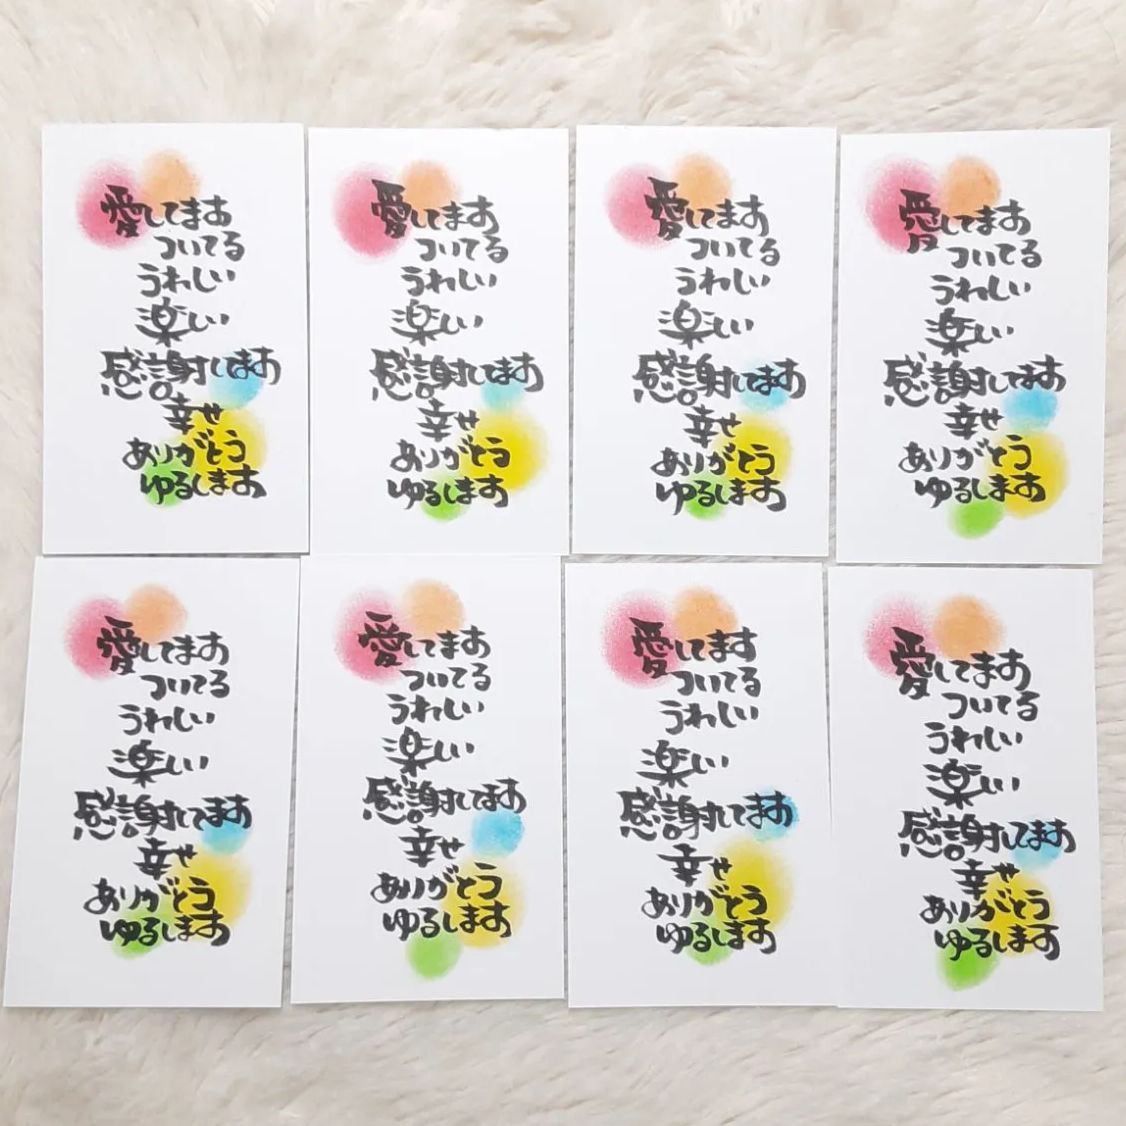 愛してます
ついてる
うれしい
楽しい
感謝してます
幸せ
ありがとう
ゆるします
愛してます
ついてる
うれしい
楽しい
感謝してます
幸せ
ありがとう
ゆるします
愛してます
ついてる
うれしい
楽しい
感謝してます
幸せ
ありがとう
ゆるします
愛してます
ついてる
うれしい
楽しい
感謝してます
幸せ
ありがとう
ゆるします
愛してます
ついてる
うれしい
楽しい
感謝してます
幸せ
ありがとう
ゆるします
愛してます
ついてる
うれしい
楽しい
感謝してます
幸せ
ありがとう
ゆるします
愛してます
ついてる
うれしい
楽しい
感謝してます
幸せ
ありがとう
ゆるします
愛してます
ついてる
うれしい
楽しい
感謝してます
幸せ
ありがとう
ゆるします